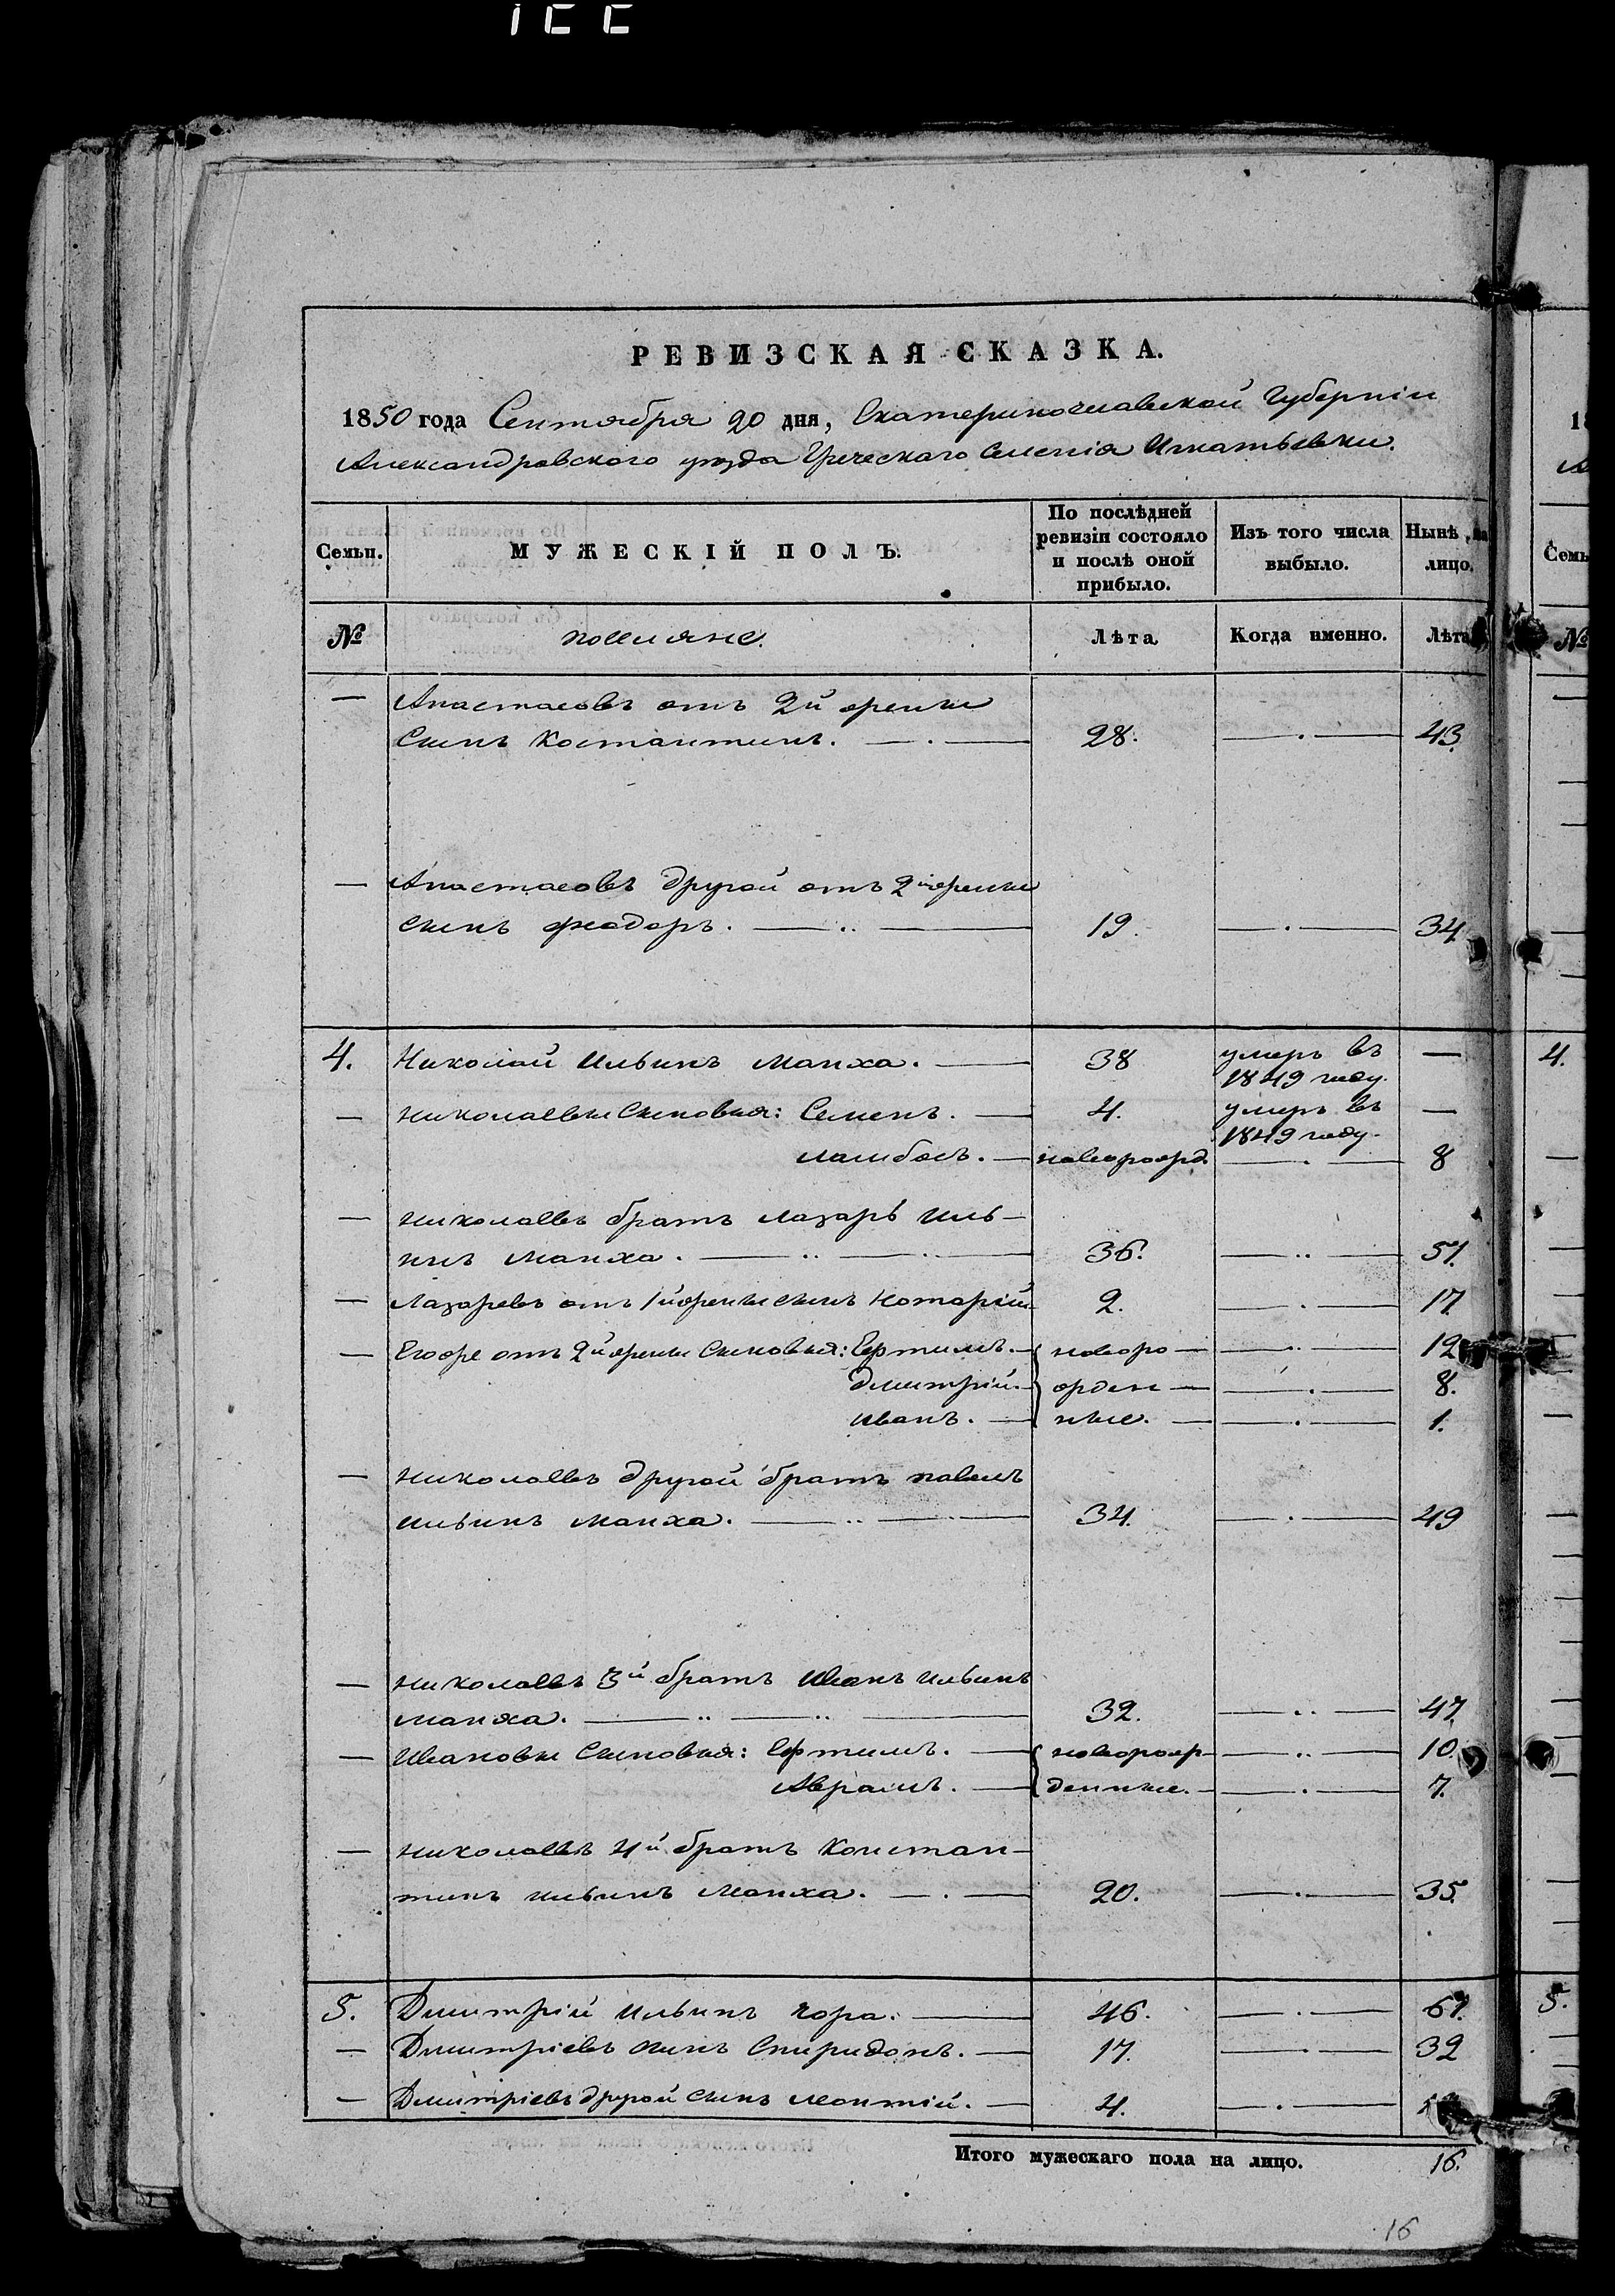 РЕВИЗСКАЯ СКАЗКА.
1850 года Сентября 20 дня, Екатеринославской Губерніи
Александровского уезда Греческаго Селенія Игнатьевки.
Семьи.
МУЖЕСКІЙ ПОЛЪ.
По послѣдней ревизіи состояло и послѣ оной прибыло.
Изъ того числа выбыло.
Нынѣ на лицо.
№ поселяне. Лѣта. Когда именно. Лѣта
— Анастасовъ отъ 2й жены
сынъ Костантинъ. — 28. — 43.
— Анастасовъ другой отъ 2й жены
сынъ Феодоръ. — 19. — 34
4. Николай Ильинъ Манха. — 38 умеръ въ 1849 году. —
— Николаевы сыновья: Семенъ. — 4. умеръ въ 1849 году. —
Ламбосъ. — новорожд. — 8
— Николаевъ братъ Лазарь Иль-
инъ Манха. — 36. — 51.
— Лазаревъ отъ 1й жены сынъ Нотарій 2. — 17
— Егоже отъ 2й жены сыновья: Ефтимъ. — новоро— — 12
Дмитрій. — жден— — 8.
Иванъ. — ные. — 1.
— Николаевъ другой братъ Павелъ
Ильинъ Манха. — 34. — 49
— Николаевъ 3й братъ Иванъ Ильинъ
Манха. — 32. — 47.
— Ивановы сыновья: Ефтимъ. — новорож— — 10.
Аврамъ. — денные. — 7.
— Николаевъ 4й братъ Констан-
тинъ Ильинъ Манха. — 20. — 35.
5. Дмитрій Ильинъ Чора. — 46. — 61.
— Дмитріевъ сынъ Спиридонъ. — 17. — 32
— Дмитріевъ другой сынъ Леонтій. — 4. —
Итого мужескаго пола на лицо. 16.
16